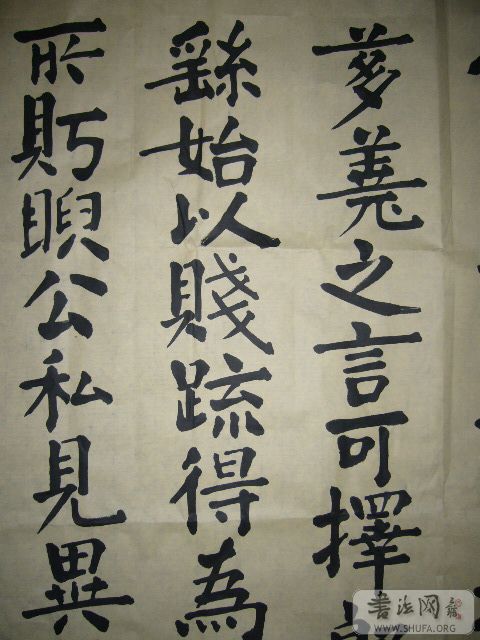 芻蕘之言可擇
繇始以賤疏得為
所睨公私見異
書法网
WWW.SHUFA.ORG